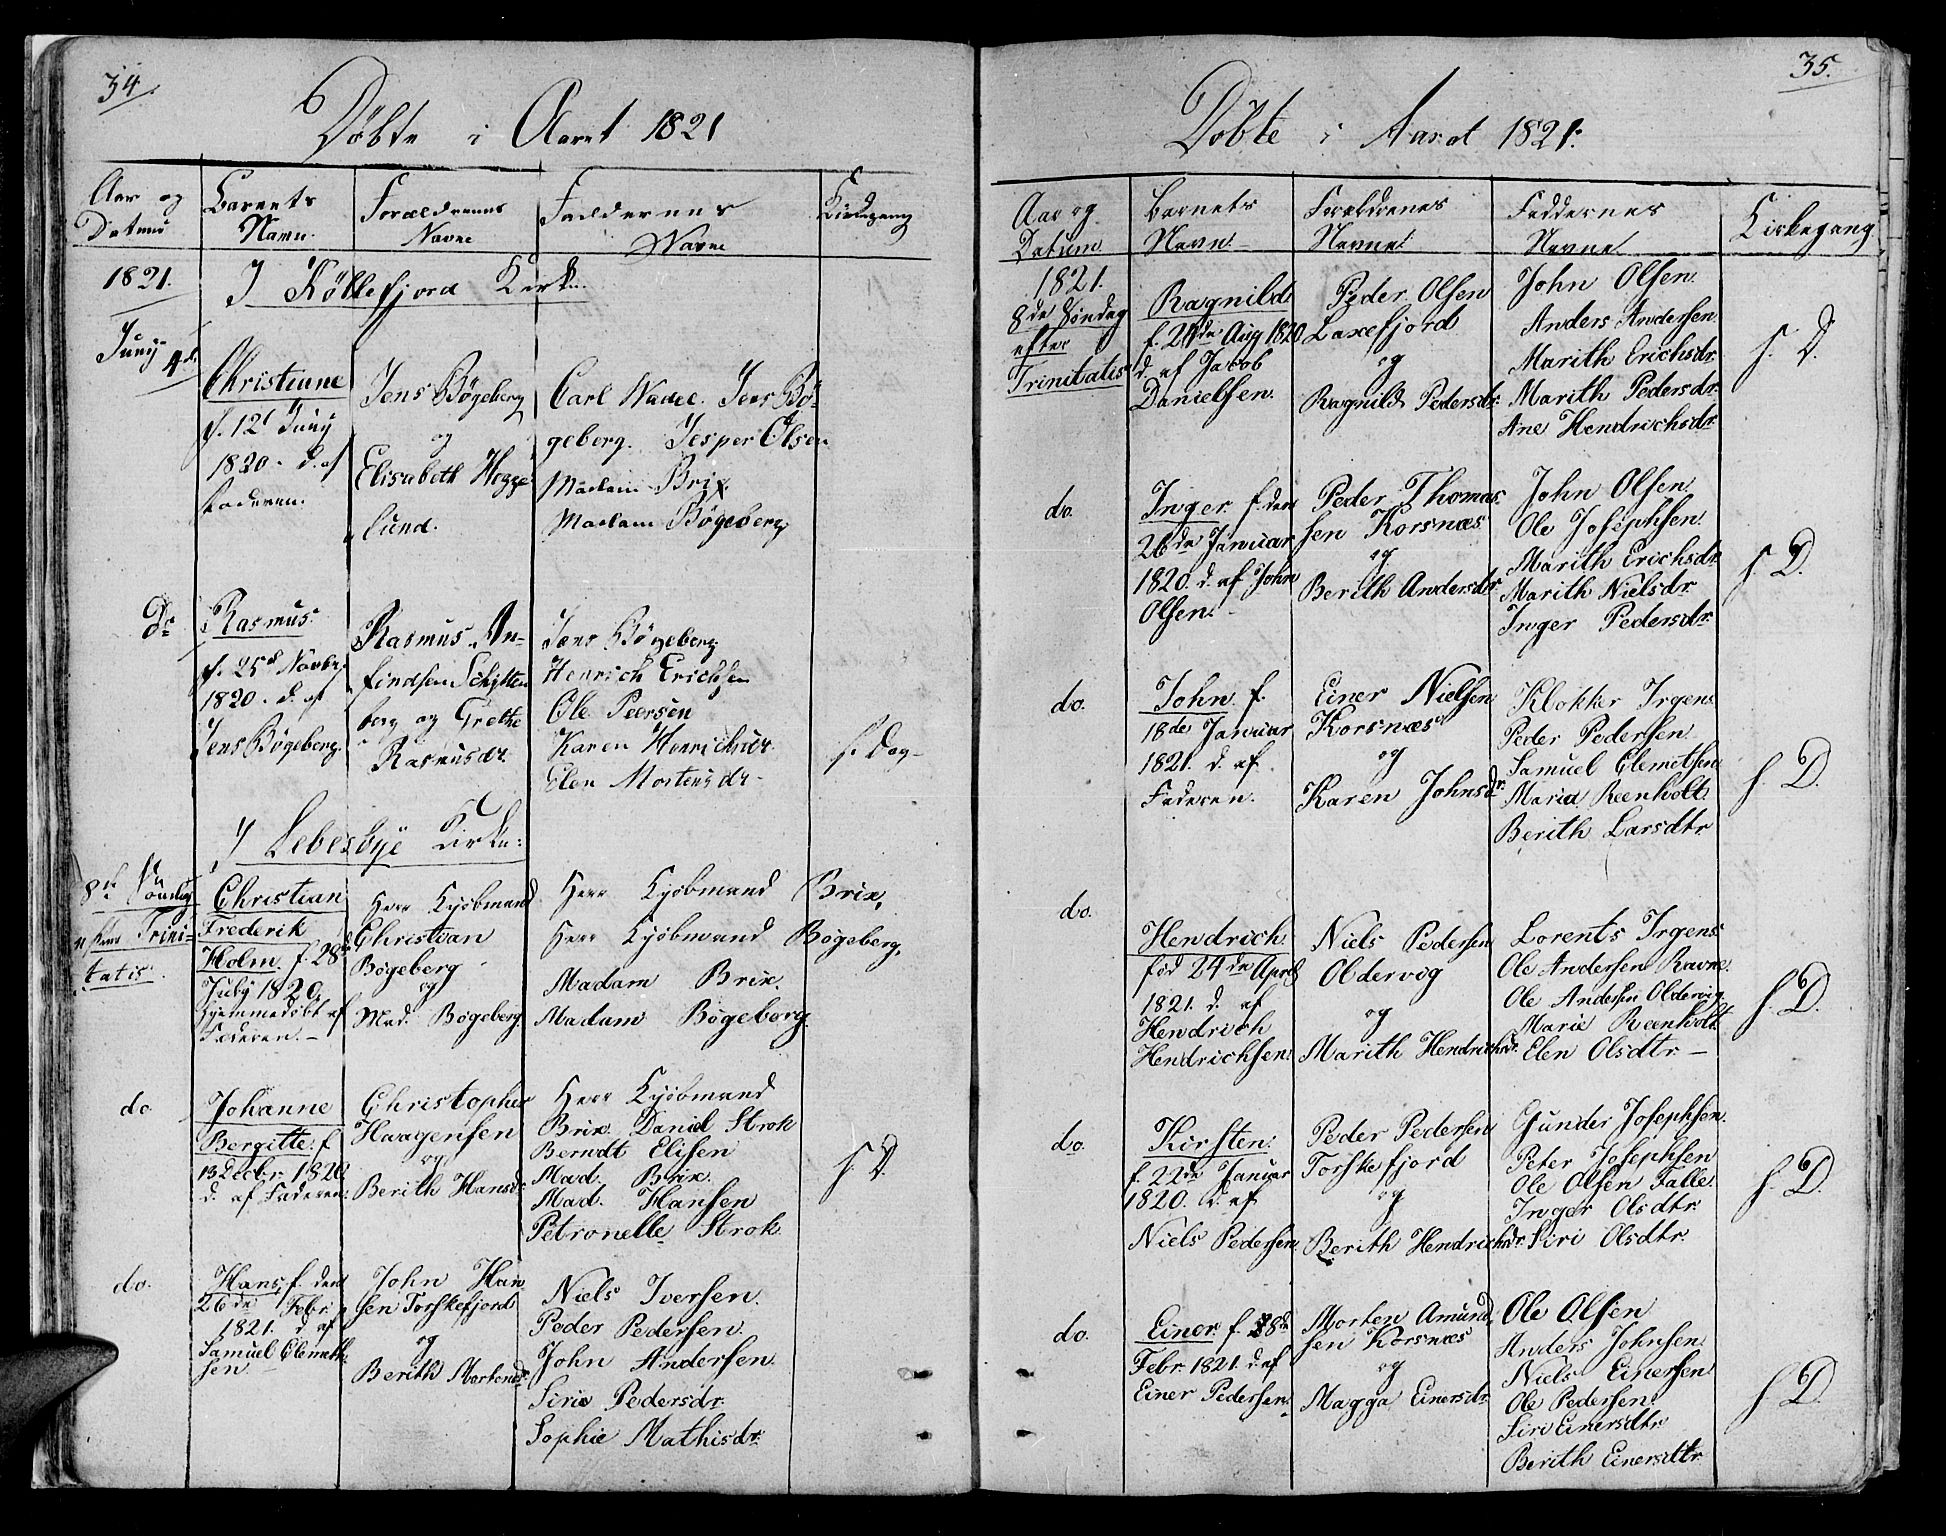 34.
Döbte i Aaret 1821
Aar og Datum
Barnets Navn.
Forældrenes Navne
Faddernes Navne
Kirkegang
1821.
I Köllefjord Kirke.
Juny 4de
Christiane
f. 12t Juny
1820. d. af
Faderen.
Jens Bögeberg
og
Elisabeth Hegge
lund.
Carl Wadel. Jens Bö-
geberg. Jesper Olsen
Madam Brix
Madam Bögeberg
Do
Rasmus.
f. 25d Novbr
1820. d. af
Jens Bögeberg.
Rasmus An-
findsen Schytten
berg og Grethe
Rasmusdr.
Jens Bögeberg
Henrich Erichsen
Ole Peersen
Karen Henrichsdr
Elen Mortensdr
f. Dag
I Lebesbye Kirke:
8de Söndag
efter Trini-
tatis.
Christian
Frederik
Holm f. 28de
July 1820.
hjemmedöbt af
Faderen.
Herr Kjöbmand
Christian
Bögeberg
og
Mad. Bögeberg
Herr Kjöbmand Brix,
Herr Kjöbmand Bögeberg,
Madam Brix.
Madam Bögeberg.
do.
Johanne
Bergitte. f
13 Decbr. 1820
d. af Faderen.
Christopher
Haagensen
og
Berith Hansdr
Herr Kjöbmand
Brix. Daniel Strok
Berndt Elisen
Mad. Brix.
Mad. Hansen
Petronelle Strok.
f. D
do.
Hans f. den
26de Febr.
1821. d. af
Samuel Clemeth
sen.
John Han
sen Torskefjord
og
Berith Mortensd.
Niels Iversen.
Peder Pedersen.
John Andersen.
Sirie Pedersdr.
Sophie Mathisdr.
35.
Döbte i Aaret 1821.
Aar og Datum
Barnets Navn.
Foreldrenes Navne
Faddernes Navne
Kirkegang
1821.
8de Söndag
efter
Trinitatis
Ragnild
f. 24de Aug 1820
d. af Jacob
Danielsen.
Peder Olsen
Laxefjord
og
Ragnild Pedersdr.
John Olsen.
Anders Andersen.
Marith Erichsdr.
Marith Pedersdr.
Ane Hendrichsdr.
f. D.
do.
Inger f. den
26de Januar
1820. d. af John
Olsen.
Peder Thomas
sen Korsnæs
og
Berith Andersdr.
John Olsen.
Ole Josephsen.
Marith Erichsdr.
Marith Nielsdr.
Inger Pedersdr.
f. D.
do.
John f.
18de Januar
1821. d. af
Faderen.
Einer Nielsen
Korsnæs
og
Karen Johnsdr.
Klokker Irgens
Peder Pedersen
Samuel Clemetsen
Maria Reenholt.
Berith Larsdtr
f. D.
do.
Hendrich.
föd 24de April
1821. d. af
Hendrich
Hendrichsen.
Niels Pedersen
Oldervig
og
Marith Hendrichsdr.
Lorents Irgens.
Ole Andersen Ravne.
Ole Andersen Oldervig
Marie Reenholt.
Elen Olsdtr
f. D.
do.
Kirsten.
f. 22de Januar
1820. d. af
Niels Pedersen.
Peder Pedersen
Torskefjord
og
Berith Hendrichsdr.
Gunder Josephsen.
Peter Josephsen
Ole Olsen Falle.
Inger Olsdtr.
Siri Olsdtr.
f. D.
do.
Einer. f. 28de
Febr. 1821. d. af
Einer Pedersen.
Morten Amund
sen Korsnæs
og
Magga Einersdr.
Ole Olsen
Anders Johnsen.
Niels Einersen
Ole Pedersen.
Siri Einersdtr
Berith Einersdtr.
f. D.